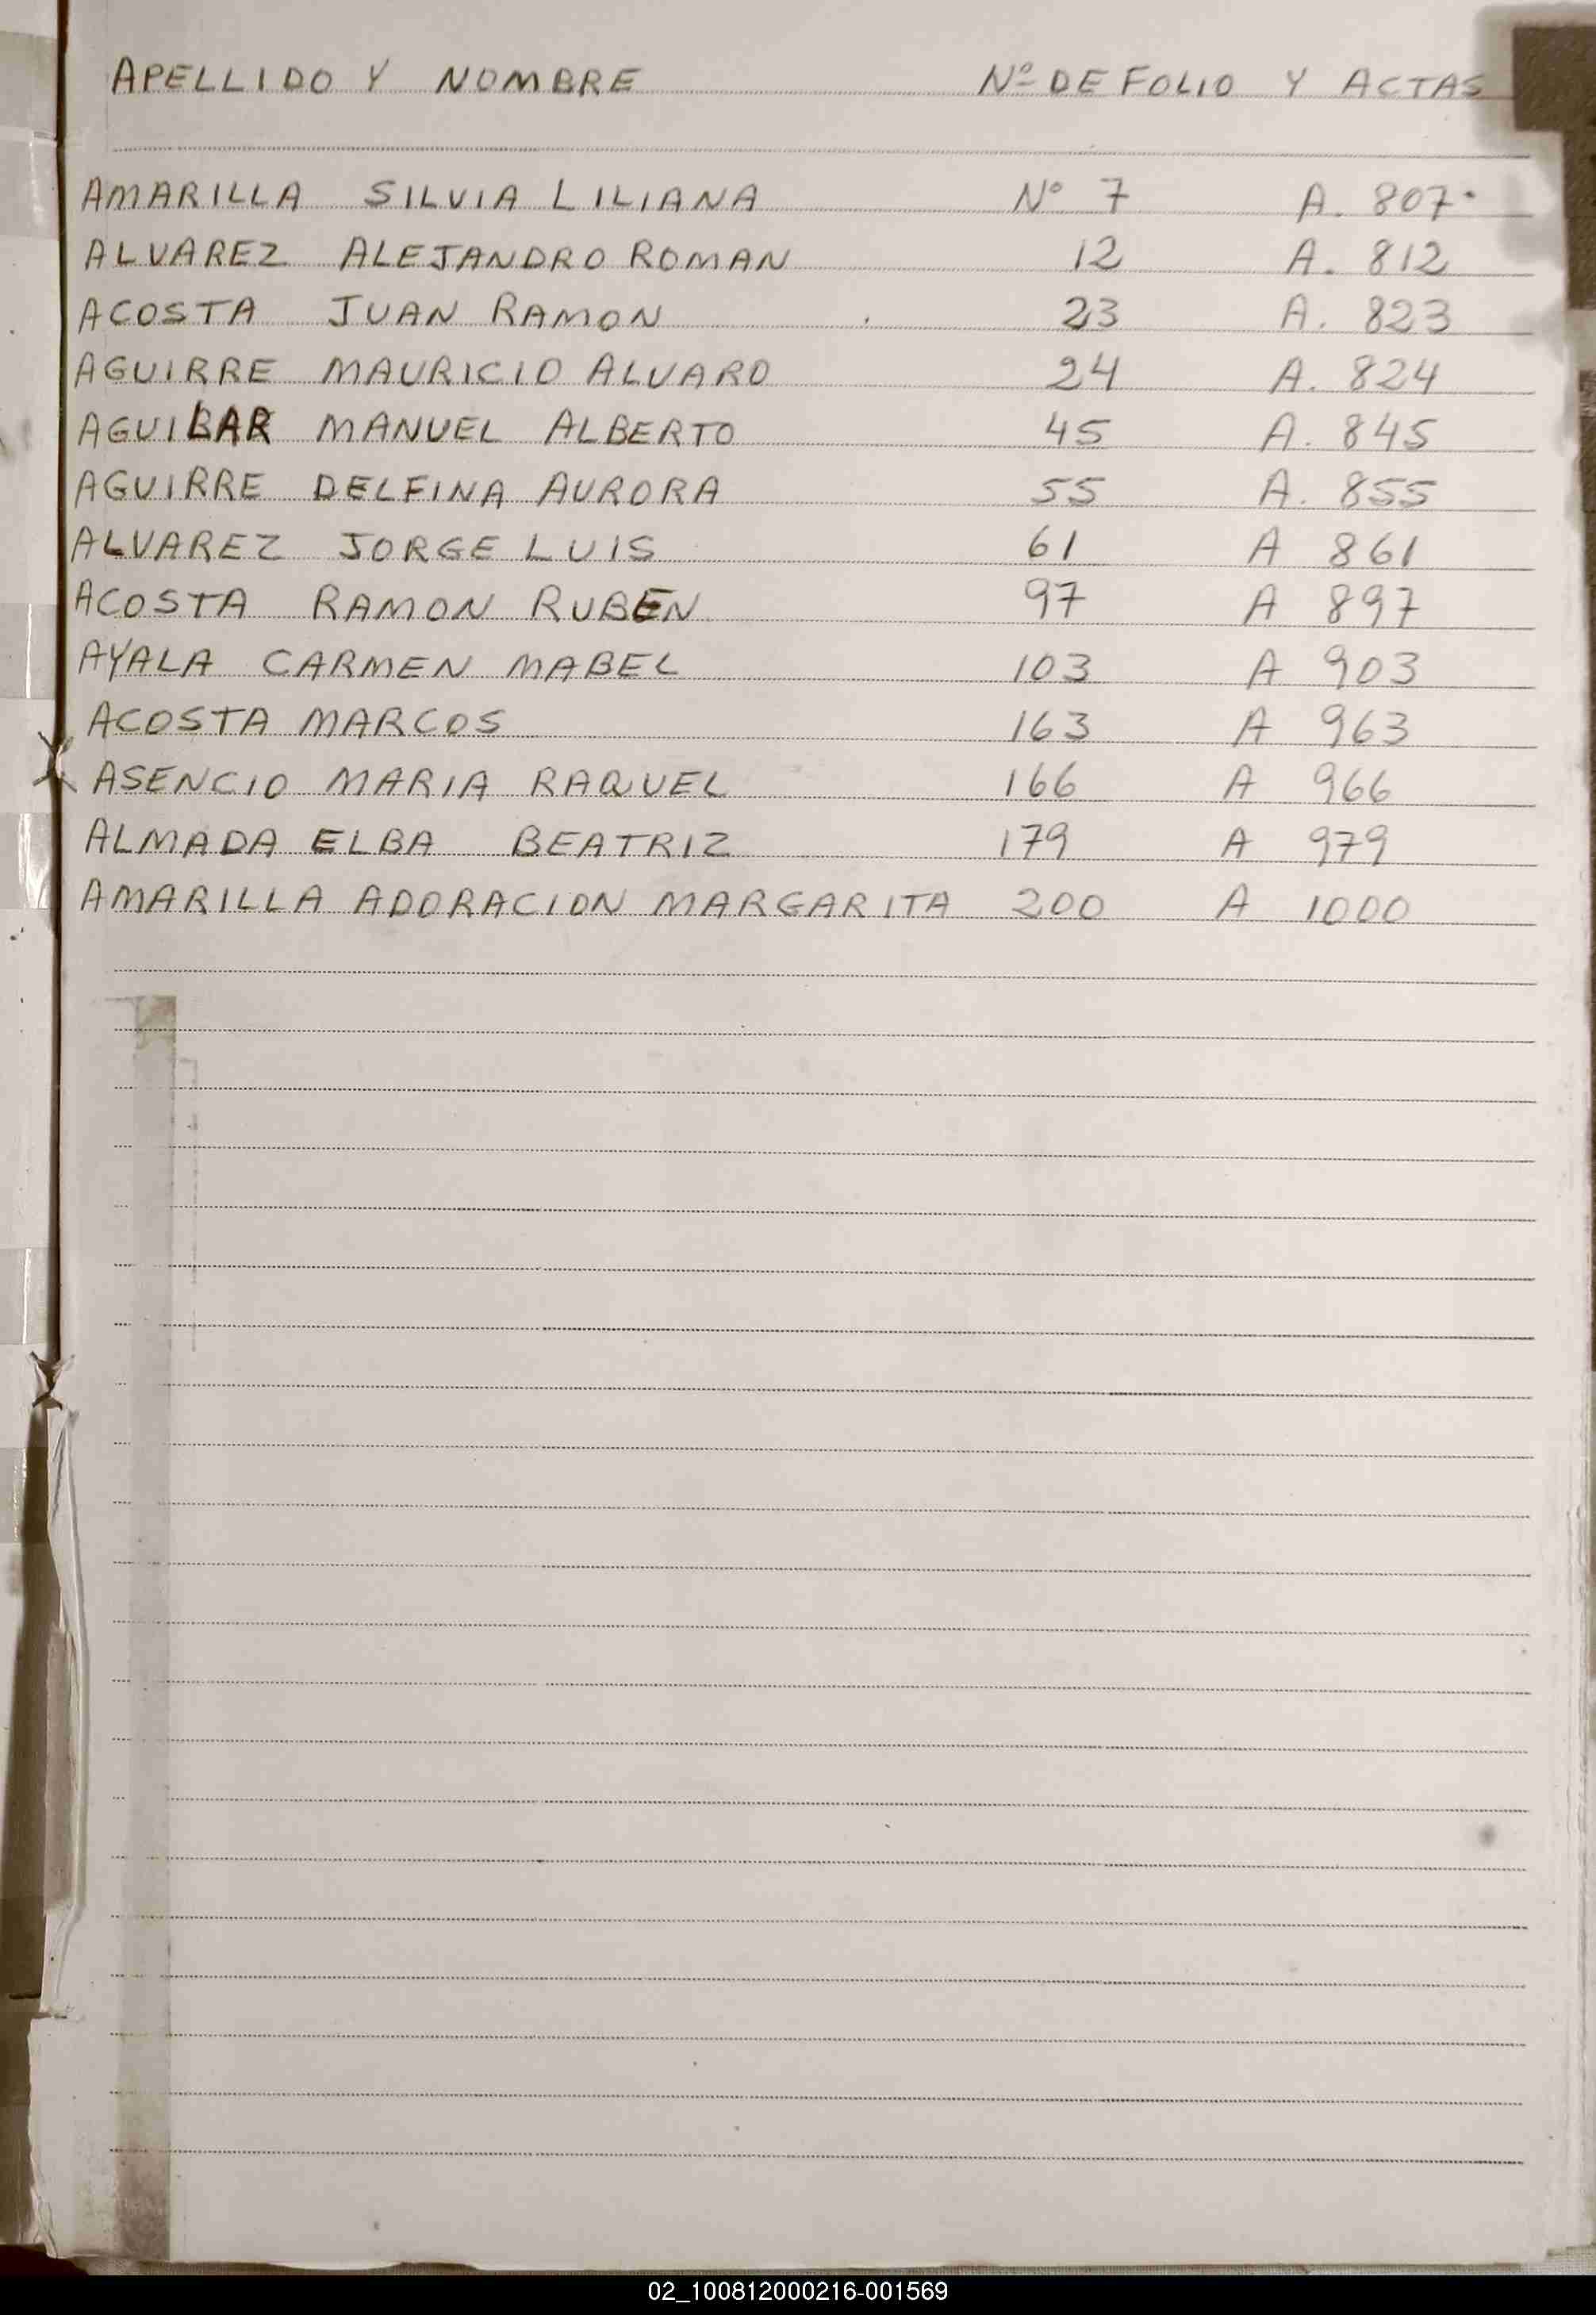 APELLIDO Y NOMBRE Nº DE FOLIO Y ACTAS
AMARILLA SILVIA LILIANA Nº 7 A. 807.
ALVAREZ ALEJANDRO ROMAN 12 A. 812
ACOSTA JUAN RAMON 23 A. 823
AGUIRRE MAURICIO ALVARO 24 A. 824
AGUILAR MANUEL ALBERTO 45 A. 845
AGUIRRE DELFINA AURORA 55 A. 855
ALVAREZ JORGE LUIS 61 A 861
ACOSTA RAMON RUBEN 97 A 897
AYALA CARMEN MABEL 103 A 903
ACOSTA MARCOS 163 A 963
ASENCIO MARIA RAQUEL 166 A 966
ALMADA ELBA BEATRIZ 179 A 979
AMARILLA ADORACION MARGARITA 200 A 1000
02_100812000216-001569